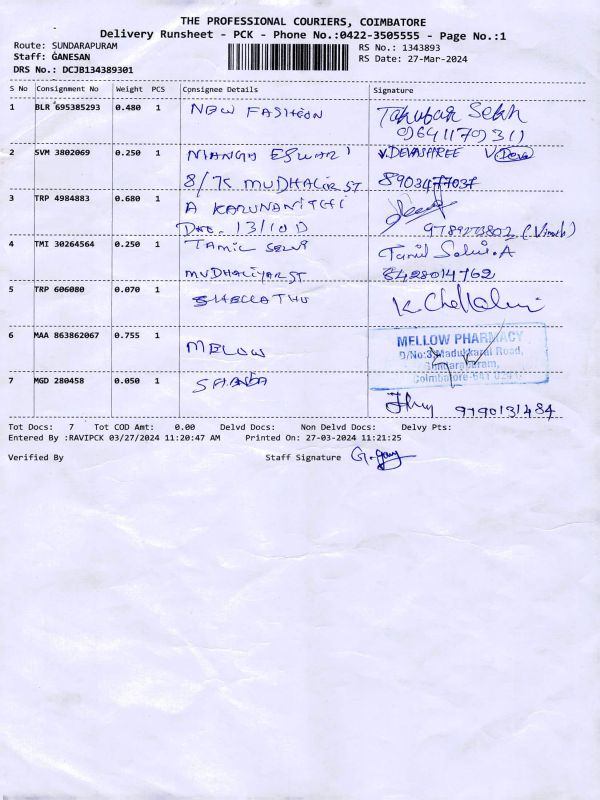 THE PROFESSIONAL COURIERS, COIMBATORE
Delivery Runsheet - PCK - Phone No.:0422-3505555 - Page No.:1
Route: SUNDARAPURAM
RS No.: 1343893
Staff: GANESAN
RS Date: 27-Mar-2024
DRS No.: DCJB134389301
S No Consignment No Weight PCS Consignee Details Signature
1 BLR 695385293 0.480 1 NEW FASHEON
09641170311
2 SVM 3802069 0.250 1 MANGU ESWARI V.DEVASHREE V Deva
8/75 MUDHALIR ST 8903477037
3 TRP 4984883 0.680 1 A KARUNANITHI
13/10 D 9789273802 (Vimal)
4 TMI 30264564 0.250 1 TAMIL SELVI Tamil Selvi.A
MUDHALIYAR ST 8428014762
5 TRP 606080 0.070 1 SHELLATHU
6 MAA 863862067 0.755 1 MELOW
MELLOW PHARMACY
D/No:3, Madukkarai Road,
Sundarapuram,
Coimbatore-641 024
7 MGD 280458 0.050 1
9790131484
Tot Docs: 7 Tot COD Amt: 0.00 Delvd Docs: Non Delvd Docs: Delvy Pts:
Entered By :RAVIPCK 03/27/2024 11:20:47 AM Printed On: 27-03-2024 11:21:25
Verified By Staff Signature